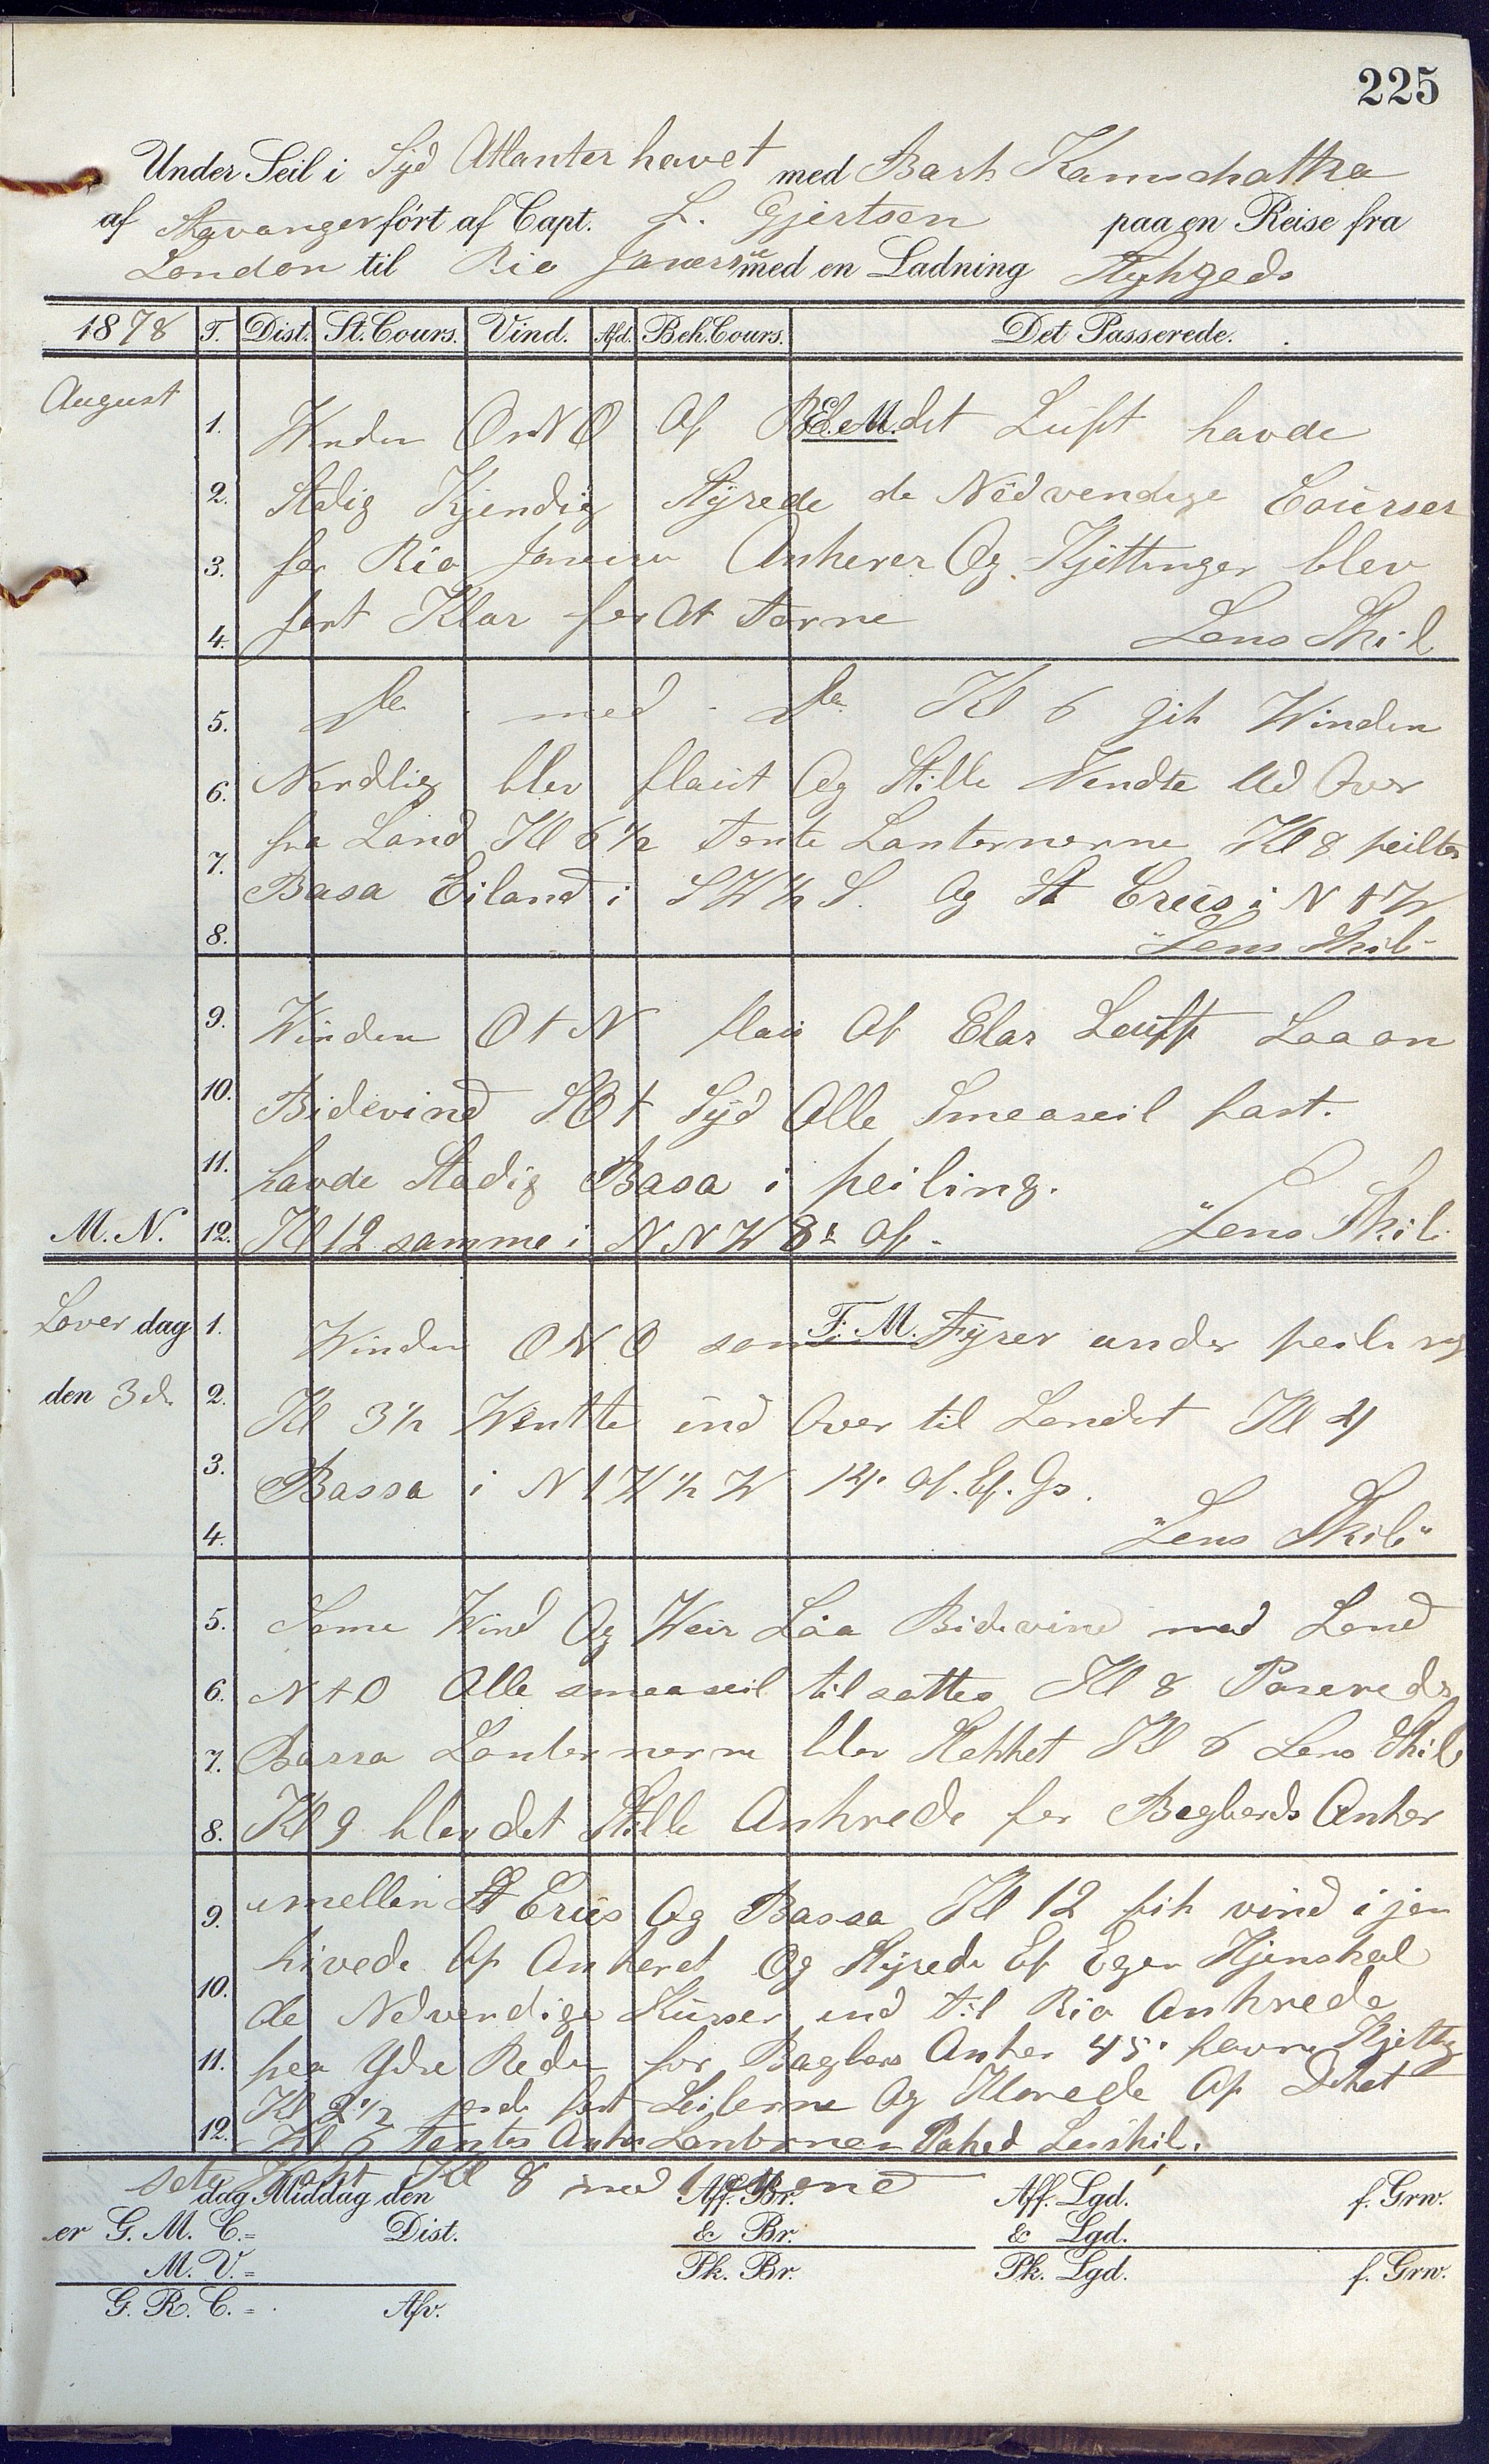 225
Under Seil i Syd Atlanter havet med Bark Kamschatka
af Stavanger fört af Capt. L. Gjertsen paa en Reise fra
London til Rio Janerie med en Ladning Stykgeds
1878 T. Dist. St. Cours. Vind. Afd. Beh. Cours. Det Passerede.
August
E. M.
1. Winden OnNO Af det Luft havde
2. Stdig Kjendig Styrede de Nödvendige Courser
3. for Rio Janeiro Ankerer Og Kjettinger blev
4. fort Klar for At torne Lens Skil
5. Do med Do Kl 6 gik Winden
6. Nordlig blev flaut Og Stille Vendte Ud Over
7. fra Land Kl 6 1/2 tente Lanternerne Kl 8 peiltes
8. Basa Eiland i SW 1/2 S. Og St Crüs i N t W
"Lens Skib"
9. Winden O t N flau Af Clar Luft Laa an
10. Bidevind SO t Syd Alle Smeaseil fast.
11. havde Stadig Basa i peiling.
M. N. 12. Kl 12 samme i NNW 8 Af. "Lens Skib
Lover dag F. M.
1. Winden ONO Fyrer under peiling
den 3de 2. Kl 3 1/2 Wentte ind Over til Landet Kl 4
3. Bassa i N t W 1/2 W 14' Af. Ef. Gs.
4. "Lens Skib"
5. Same Wind Og Weir Laa Bidevind mod Land
6. N t O Alle smeaseil tilsattes Kl 8 Paserede
7. Bassa Lanternerne blev Slekket Kl 6 Lens Skib
8. Kl 9 blev det Stille Ankrede for Bagbords Anker
9. imellem St Crüs Og Bassa Kl 12 fik vind i jen
hivede Op Ankeret Og Styrede Ef Egen Kjenskab
10. de Nedvendige Kurser ind til Rio Ankrede
11. paa Ydre Reden for Bagbors Anker 45. favne Kjetting
Kl 2 1/2 fast Seilerne Og Klarede Op Deket
12. Kl 6 tentes Anker Lanternen Lenskib.
Kl 8 med
dag Middag den Aff. Br. Aff. Lgd. f. Grw.
er G. M. C. = Dist. & Br. & Lgd.
M. V. = Pk. Br. Pk. Lgd. f. Grw.
G. R. C. = Afv.